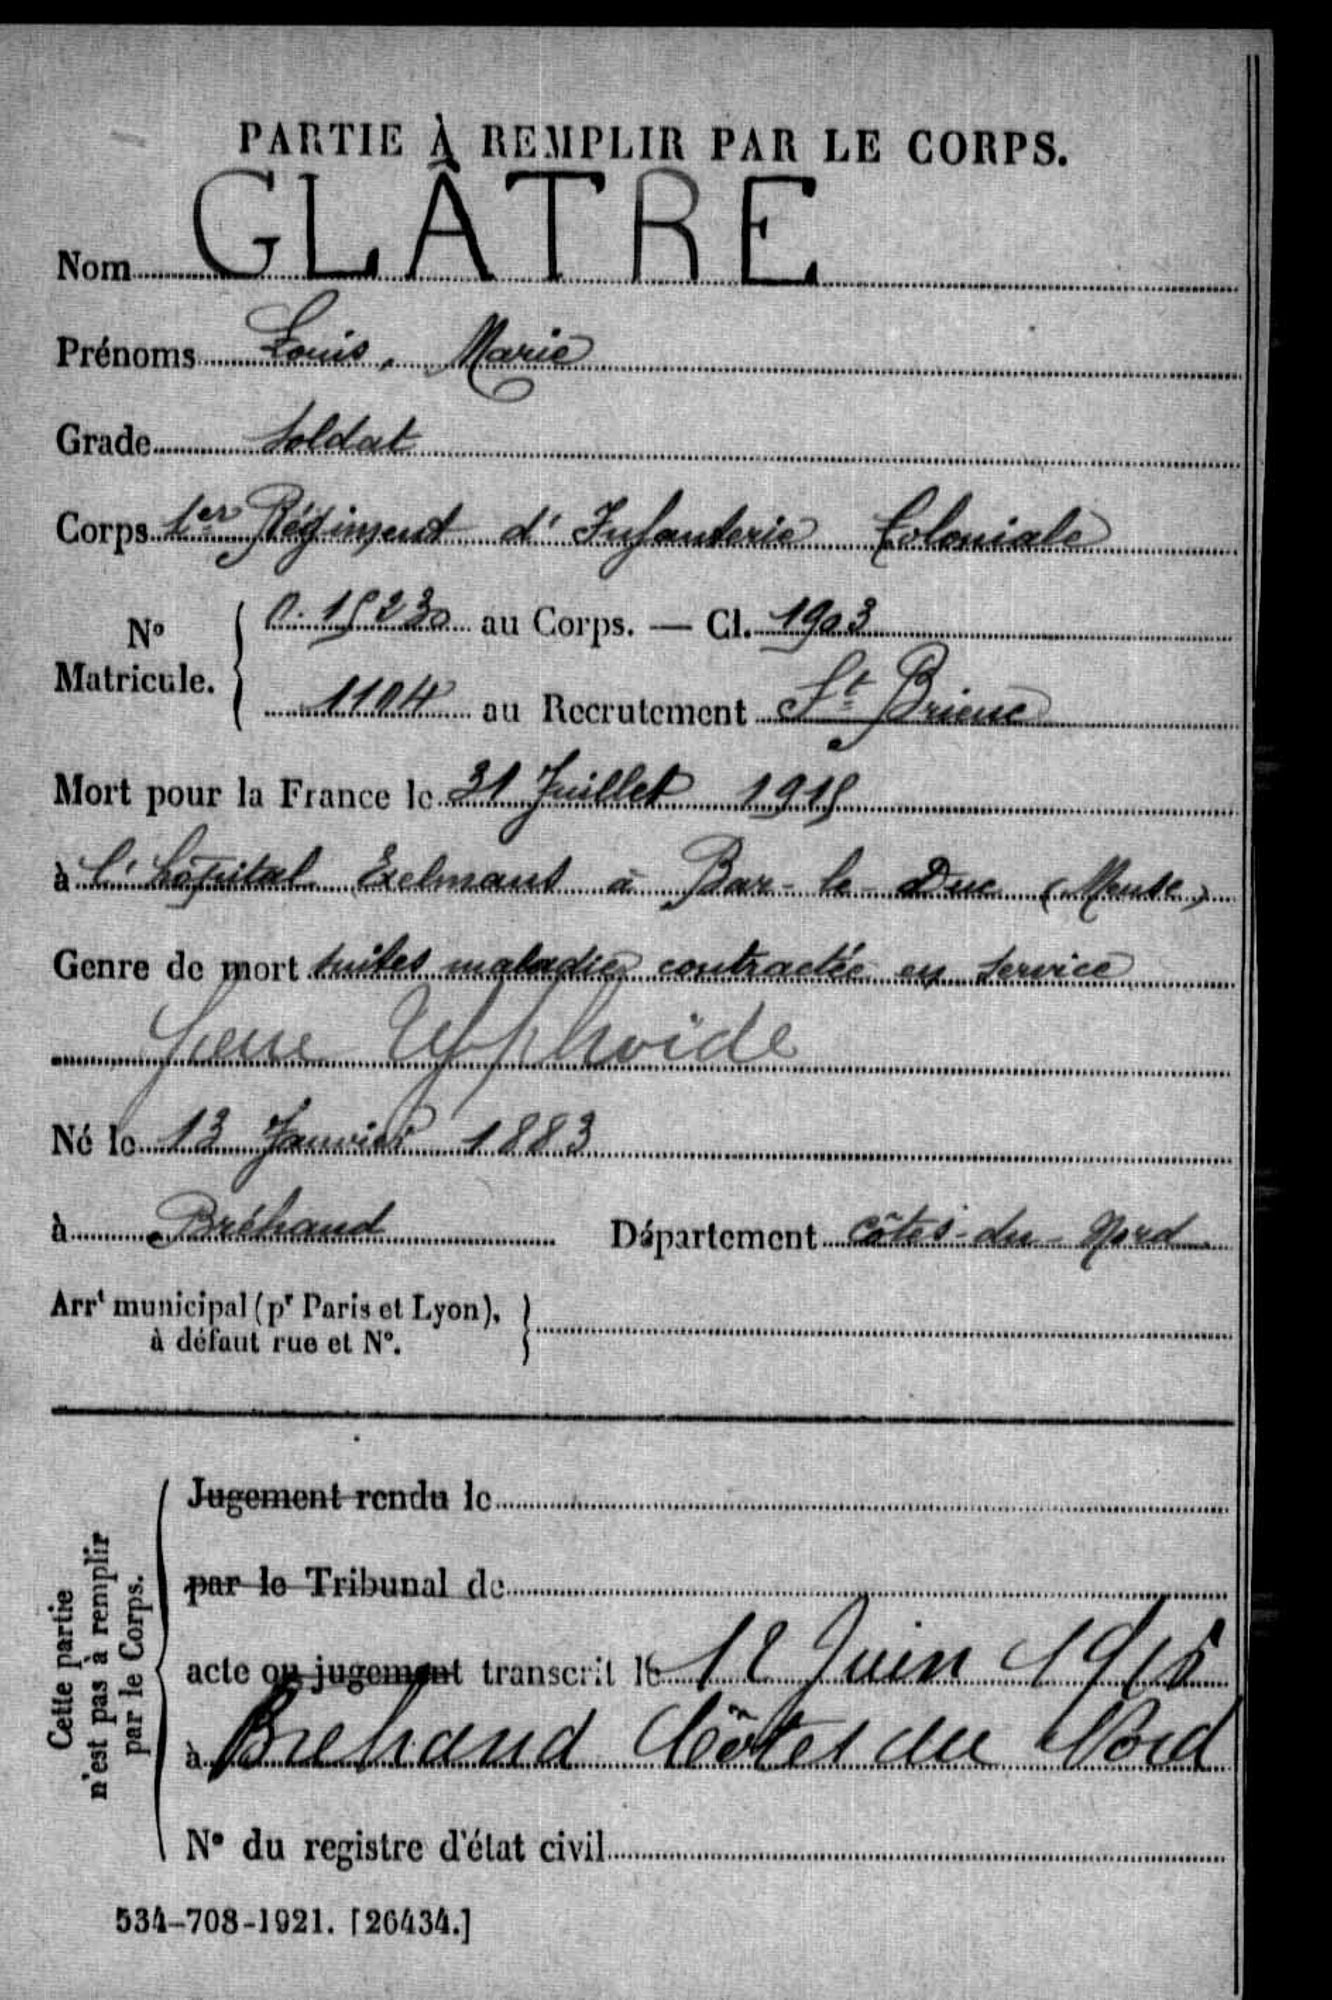 PARTIE À REMPLIR PAR LE CORPS.
Nom GLÂTRE
Prénoms Louis, Marie
Grade Soldat
Corps 1er Régiment d'Infanterie Coloniale
N° Matricule. 0.15230 au Corps. — Cl. 1903
1104 au Recrutement St Brieuc
Mort pour la France le 31 Juillet 1915
à l'hôpital Exelmans à Bar-le-Duc (Meuse)
Genre de mort suites maladie contractée en service
fievre typhoïde
Né le 13 Janvier 1883
à Bréhand Département Côtes-du-Nord
Arrt municipal (pr Paris et Lyon),
à défaut rue et N°.
Cette partie
n'est pas à remplir
par le Corps.
Jugement rendu le
par le Tribunal de
acte ou jugement transcrit le Juin
à Brehand Côtes du Nord
N° du registre d'état civil
534-708-1921. [26434.]